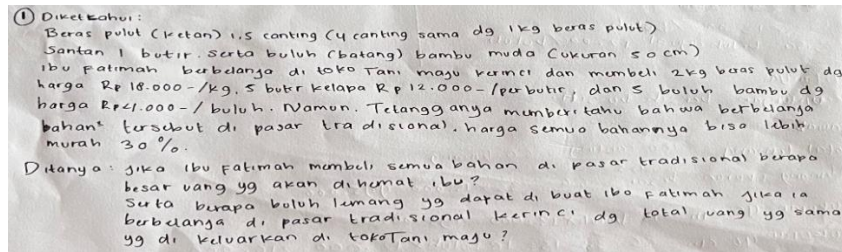 ① Diketahui :
Beras pulut (ketan) 1.5 canting (4 canting sama dg 1kg beras pulut)
Santan 1 butir. serta buluh (batang) bambu muda (ukuran 50 cm)
ibu Fatimah berbelanja di toko Tani maju kerinci dan membeli 2kg beras pulut dg
harga Rp 18.000-/kg, 5 butir kelapa Rp 12.000-/perbutir, dan 5 buluh bambu dg
harga Rp 21.000-/buluh. Namun, Tetangganya memberi tahu bahwa berbelanja
bahan² tersebut di pasar tradisional, harga semua bahannya bisa lebih
murah 30%.
Ditanya : Jika ibu Fatimah membeli semua bahan di pasar tradisional berapa
besar uang yg akan dihemat ibu?
Serta berapa buluh lemang yg dapat di buat ibu Fatimah jika ia
berbelanja di pasar tradisional kerinci dg total uang yg sama
yg di keluarkan di toko Tani maju?